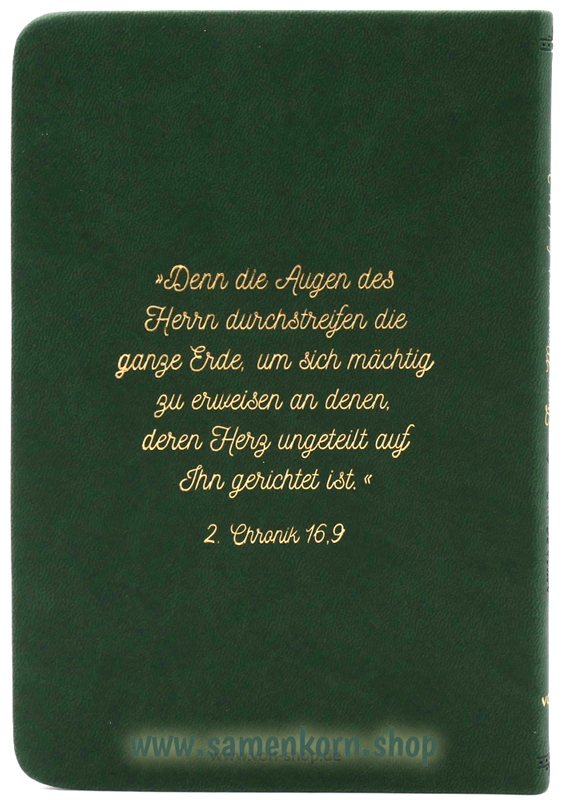 »Denn die Augen des
Herrn durchstreifen die
ganze Erde, um sich mächtig
zu erweisen an denen,
deren Herz ungeteilt auf
Ihn gerichtet ist.«
2. Chronik 16,9
www.samenkorn.shop
www.voh-shop.de